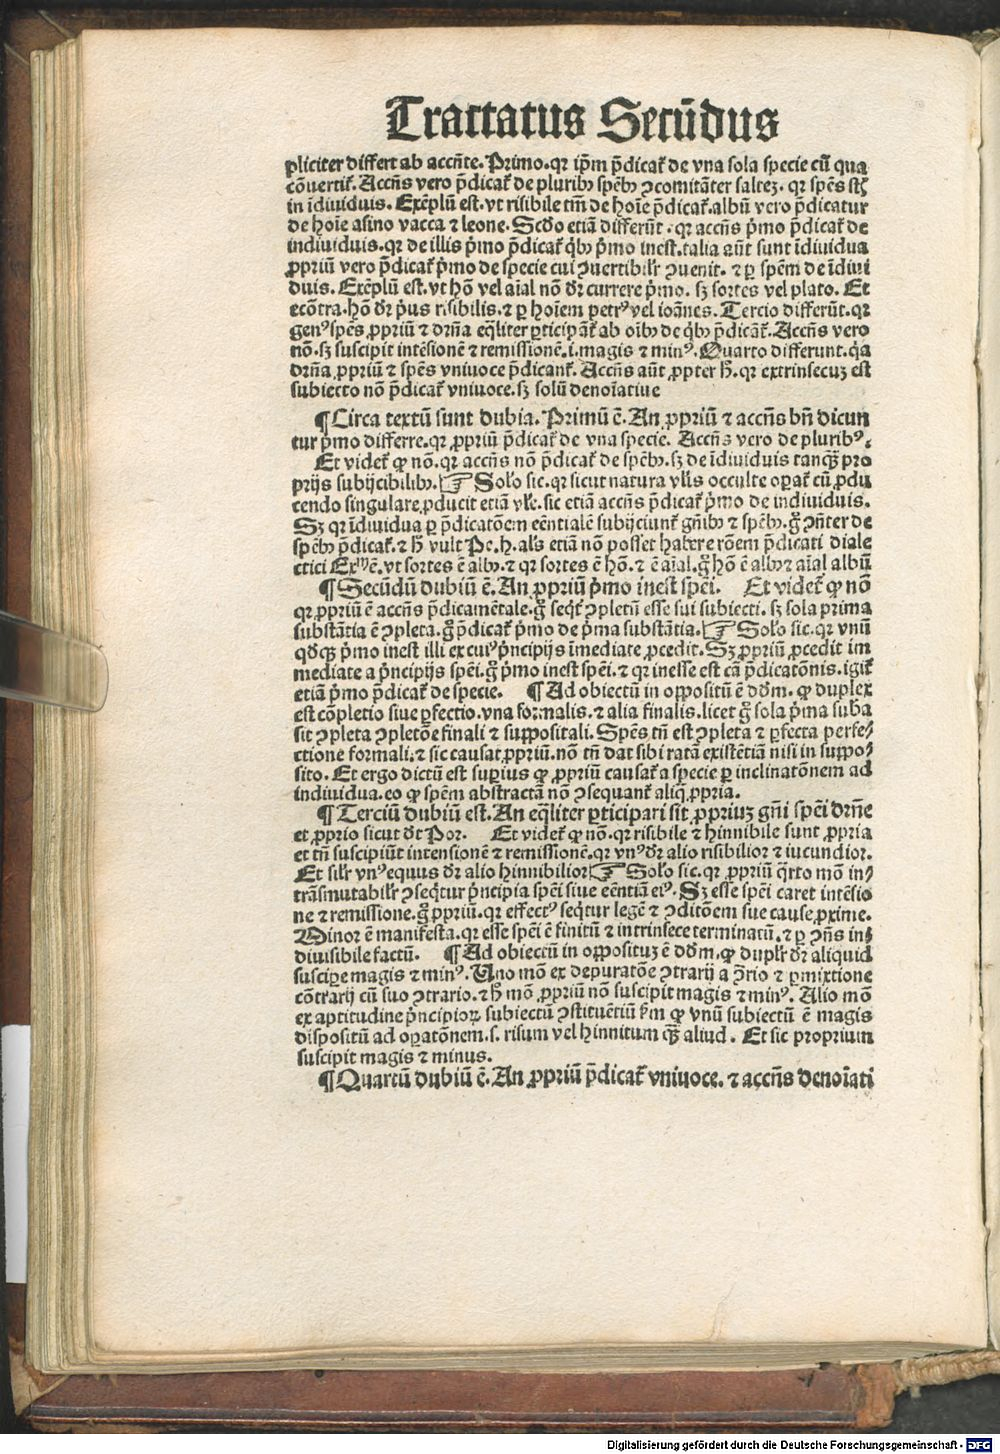 Tractatus Secūdus
pliciter differt ab accn̄te. Primo. qꝛ ip̄m p̄dicat᷑ de vna sola specie cū qua
cōuertit᷑. Accn̄s vero p̄dicat᷑ de pluribꝰ spēbꝰ ꝯcomitāter saltez. qꝛ spēs
in īdiuiduis. Exēplū est. vt risibile tm̄ de hoīe p̄dicat᷑. albū vero p̄dicatur
de hoīe asino vacca ⁊ leone. Scd̄o etiā differūt. qꝛ accn̄s p̄mo p̄dicat᷑ de
indiuiduis. qꝛ de illis p̄mo p̄dicat᷑ qͥbꝰ p̄mo inest. talia aūt sunt īdiuidua
ꝓpriū vero p̄dicat᷑ p̄mo de specie cui ꝯuertibilr̄ ꝯuenit. ⁊ ꝑ spēm de īdiui
duis. Exēplū est. vt hō vel aīal nō dr̄ currere p̄mo. sꝫ sortes vel plato. Et
ecōtra. hō dr̄ p̄us risibilis. ⁊ ꝑ hoīem petrꝰ vel ioānes. Tercio differūt. qꝛ
genꝰ spēs ꝓpriū ⁊ dr̄na eq̄liter ꝑticipāt᷑ ab oībꝰ de qͥbꝰ p̄dicāt᷑. Accn̄s vero
nō. sꝫ suscipit intēsionē ⁊ remissionē. i. magis ⁊ minꝰ. Quarto differunt. qꝛa
dr̄na ꝓpriū ⁊ spēs vniuoce p̄dicant᷑. Accn̄s aūt ꝓpter h̄. qꝛ extrinsecuꝫ est
subiecto nō p̄dicat᷑ vniuoce. sꝫ solū denoīatiue
¶ Circa textū sunt dubia. Primū ē. An ꝓpriū ⁊ accn̄s bn̄ dicun
tur p̄mo differre. qꝛ ꝓpriū p̄dicat᷑ de vna specie. Accn̄s vero de pluribꝰ.
Et videt᷑ ꝙ nō. qꝛ accn̄s nō p̄dicat᷑ de spēbꝰ. sꝫ de īdiuiduis tanqꝫ pro
prijs subijcibilibꝰ. ☞ Solo sic. qꝛ sicut natura vlis occulte oꝑat᷑ cū ꝓdu
cendo singulare ꝓducit etiā vle. sic etiā accn̄s p̄dicat᷑ p̄mo de indiuiduis.
Sꝫ qꝛ īdiuidua ꝑ p̄dicatōem eēntialē subijciunt᷑ gn̄ibꝰ ⁊ spēbꝰ. gͦ ꝯn̄ter de
spēbꝰ p̄dicat᷑. ⁊ h̄ vult Pe. h. als etiā nō posset habere rōem p̄dicati diale
ctici ē. vt sortes ē albꝰ. ⁊ qꝛ sortes ē hō. ⁊ ē aīal. gͦ hō ē albꝰ ⁊ aīal albū
¶ Secūdū dubiū ē. An ꝓpriū p̄mo inest spēi. Et videt᷑ ꝙ nō
qꝛ ꝓpriū ē accn̄s p̄dicamētale. gͦ seqͥt᷑ ꝯpletū esse sui subiecti. sꝫ sola prima
substātia ē ꝯpleta. gͦ p̄dicat᷑ p̄mo de p̄ma substātia. ☞ Solo sic. qꝛ vnū
qd̄qꝫ p̄mo inest illi ex cuiꝰ p̄ncipijs īmediate ꝓcedit. Sꝫ ꝓpriū ꝓcedit im
mediate a p̄ncipijs spēi. gͦ p̄mo inest spēi. ⁊ qꝛ inesse est cā p̄dicatōnis. igit᷑
etiā p̄mo p̄dicat᷑ de specie. ¶ Ad obiectū in oppositū ē dd̄m. ꝙ duplex
est cōpletio siue ꝑfectio. vna formalis. ⁊ alia finalis. licet gͦ sola p̄ma suba
sit ꝯpleta ꝯpletōe finali ⁊ supposítali. Spēs tn̄ est ꝯpleta ⁊ ꝑfecta perfe⸗
ctione formali. ⁊ sic causat ꝓpriū. nō tn̄ dat sibi ratā existētiā nisi in suppo⸗
sito. Et ergo dictū est suꝑius ꝙ ꝓpriū causat᷑ a specie ꝑ inclinatōnem ad
indiuidua. eo ꝙ spēm abstractā nō ꝯsequant᷑ aliq̄ ꝓpria.
¶ Terciū dubiū est. An eq̄liter ꝑticipari sit ꝓpriuꝫ gn̄i spēi dr̄ne
et ꝓprio sicut dt̄ Por. Et videt᷑ ꝙ nō. qꝛ risibile ⁊ hinnibile sunt ꝓpria
et tn̄ suscipiūt intensionē ⁊ remissionē. qꝛ vnꝰ dr̄ alio risibilior ⁊ iucundior.
Et silr̄ vnꝰ equus dr̄ alio hinnibilior ☞ Solo sic. qꝛ ꝓpriū qͣrto mō in⸗
trāsmutabilr̄ ꝯseqͥtur p̄ncipia spēi siue eēntiā eiꝰ. Sꝫ esse spēi caret intēsio
ne ⁊ remissione. gͦ ꝓpriū. qꝛ effectꝰ seqͥtur legē ⁊ ꝯditōem sue cause ꝓxime.
Minor ē manifesta. qꝛ esse spēi ē finitū ⁊ intrinsece terminatū. ⁊ ꝑ ꝯn̄s in⸗
diuisibile factū. ¶ Ad obiectū in oppositūꝫ ē dd̄m. ꝙ duplr̄ dr̄ aliquid
suscipe magis ⁊ minꝰ. Uno mō ex depuratōe ꝯtrarij a ꝯ̄rio ⁊ ꝑmixtione
cōtrarij cū suo ꝯtrario. ⁊ h̄ mō ꝓpriū nō suscipit magis ⁊ minꝰ. Alio mō
ex aptitudine p̄ncipioꝝ subiectū ꝯstituētiū km̄ ꝙ vnū subiectū ē magis
dispositū ad oꝑatōnem. s. risum vel hinnitum qꝫ aliud. Et sic proprium
suscipit magis ⁊ minus.
¶ Quartū dubiū ē. An ꝓpriū p̄dicat᷑ vniuoce. ⁊ accn̄s denoīati
Digitalisierung gefördert durch die Deutsche Forschungsgemeinschaft - DFG